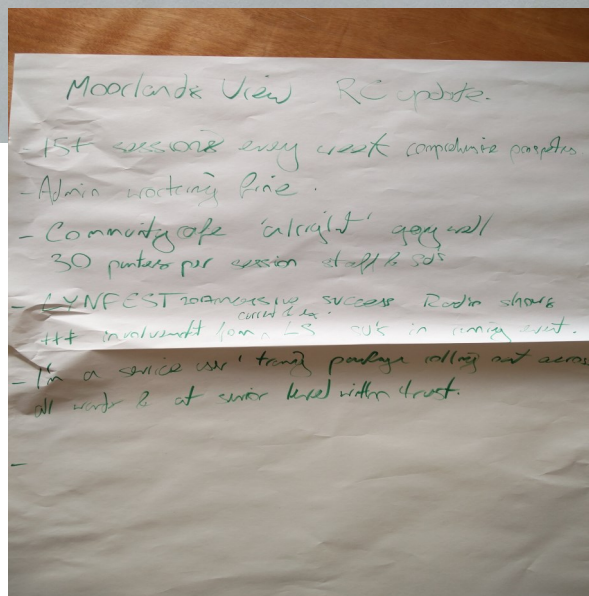 Moorlands View RC update.
- 15+ sessions every week comprehensive prospectus
- Admin working fine.
- Community cafe 'alright' going well
30 punters per session staff & SU's
- LYNFEST massive success Radio shows
current & ex.
+++ involvement from LS SU's in running event.
- I'm a service user' training package rolling out across
all wards & at senior level within trust.
-